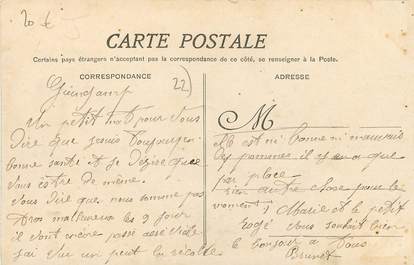 20 €
CARTE POSTALE
Certains pays étrangers n'acceptant pas la correspondance de ce côté, se renseigner à la Poste.
CORRESPONDANCE
22
ADRESSE
Guingamp
Un petit mot pour vous
dire que je suis toujours en
bonne santé et je désire que
vous être de même.
Vous dire que nous somme pas
trop malheureux les 2 foir
il vont encore passé
sai sur un peut la récolte
M
est ni bonne ni mauvais
les pommes il y en a que
par place
rien autre chose pour le
moment Marie et le petit
rogé vous souhait bien
le bonjour a tous
Brunet